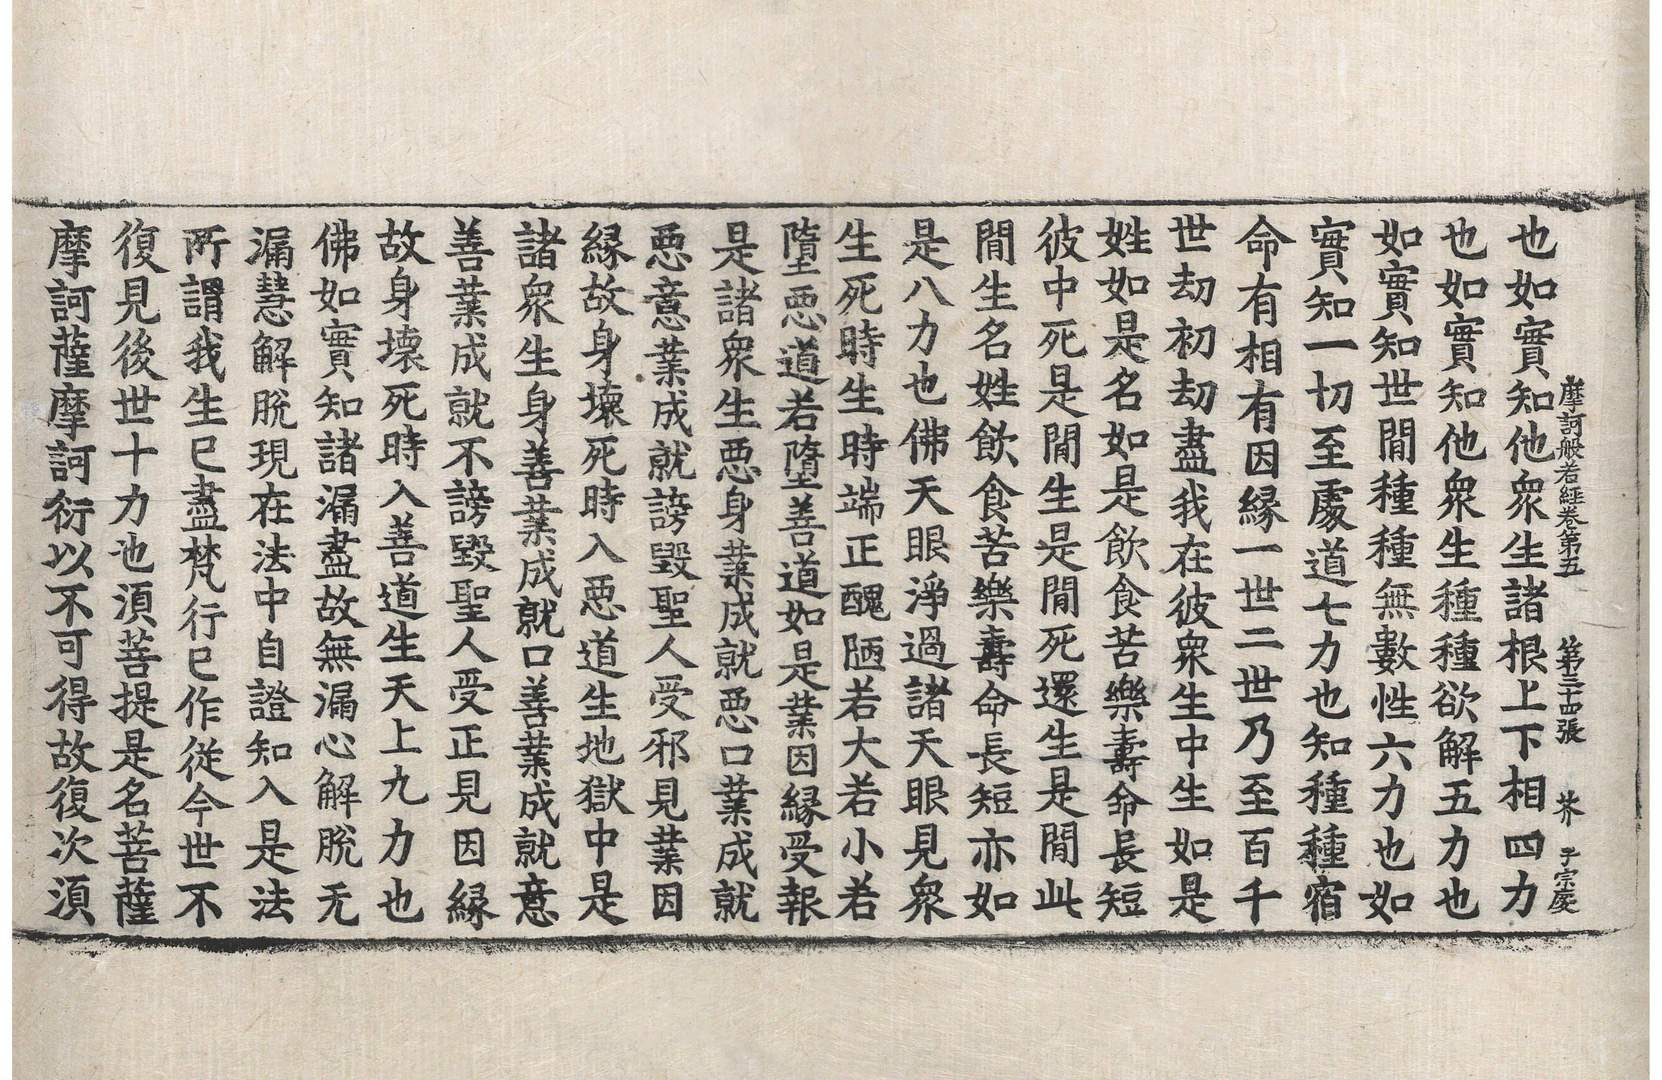 摩訶般若經卷第五 第三十四張 芥 子宗慶
也如實知他衆生諸根上下相四力
也如實知他衆生種種欲解五力也
如實知世間種種無數性六力也如
實知一切至處道七力也知種種宿
命有相有因縁一世二世乃至百千
世劫初劫盡我在彼衆生中生如是
姓如是名如是飲食苦樂壽命長短
彼中死是間生是間死還生是間此
間生名姓飲食苦樂壽命長短亦如
是八力也佛天眼淨過諸天眼見衆
生死時生時端正醜陋若大若小若
墮惡道若墮善道如是業因縁受報
是諸衆生惡身業成就惡口業成就
惡意業成就謗毀聖人受邪見業因
縁故身壞死時入惡道生地獄中是
諸衆生身善業成就口善業成就意
善業成就不謗毀聖人受正見因縁
故身壞死時入善道生天上九力也
佛如實知諸漏盡故無漏心解脫无
漏慧解脫現在法中自證知入是法
所謂我生已盡梵行已作從今世不
復見後世十力也須菩提是名菩薩
摩訶薩摩訶衍以不可得故復次須